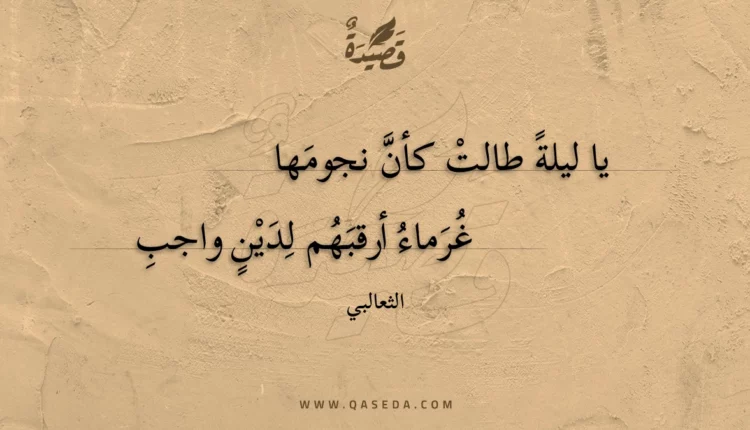 قَصِيْدَةٌ
يا ليلةً طالتْ كأنَّ نجومَها
غُرَماءُ أرقبَهُم لِدَيْنٍ واجبِ
الثعالبي
WWW.QASEDA.COM